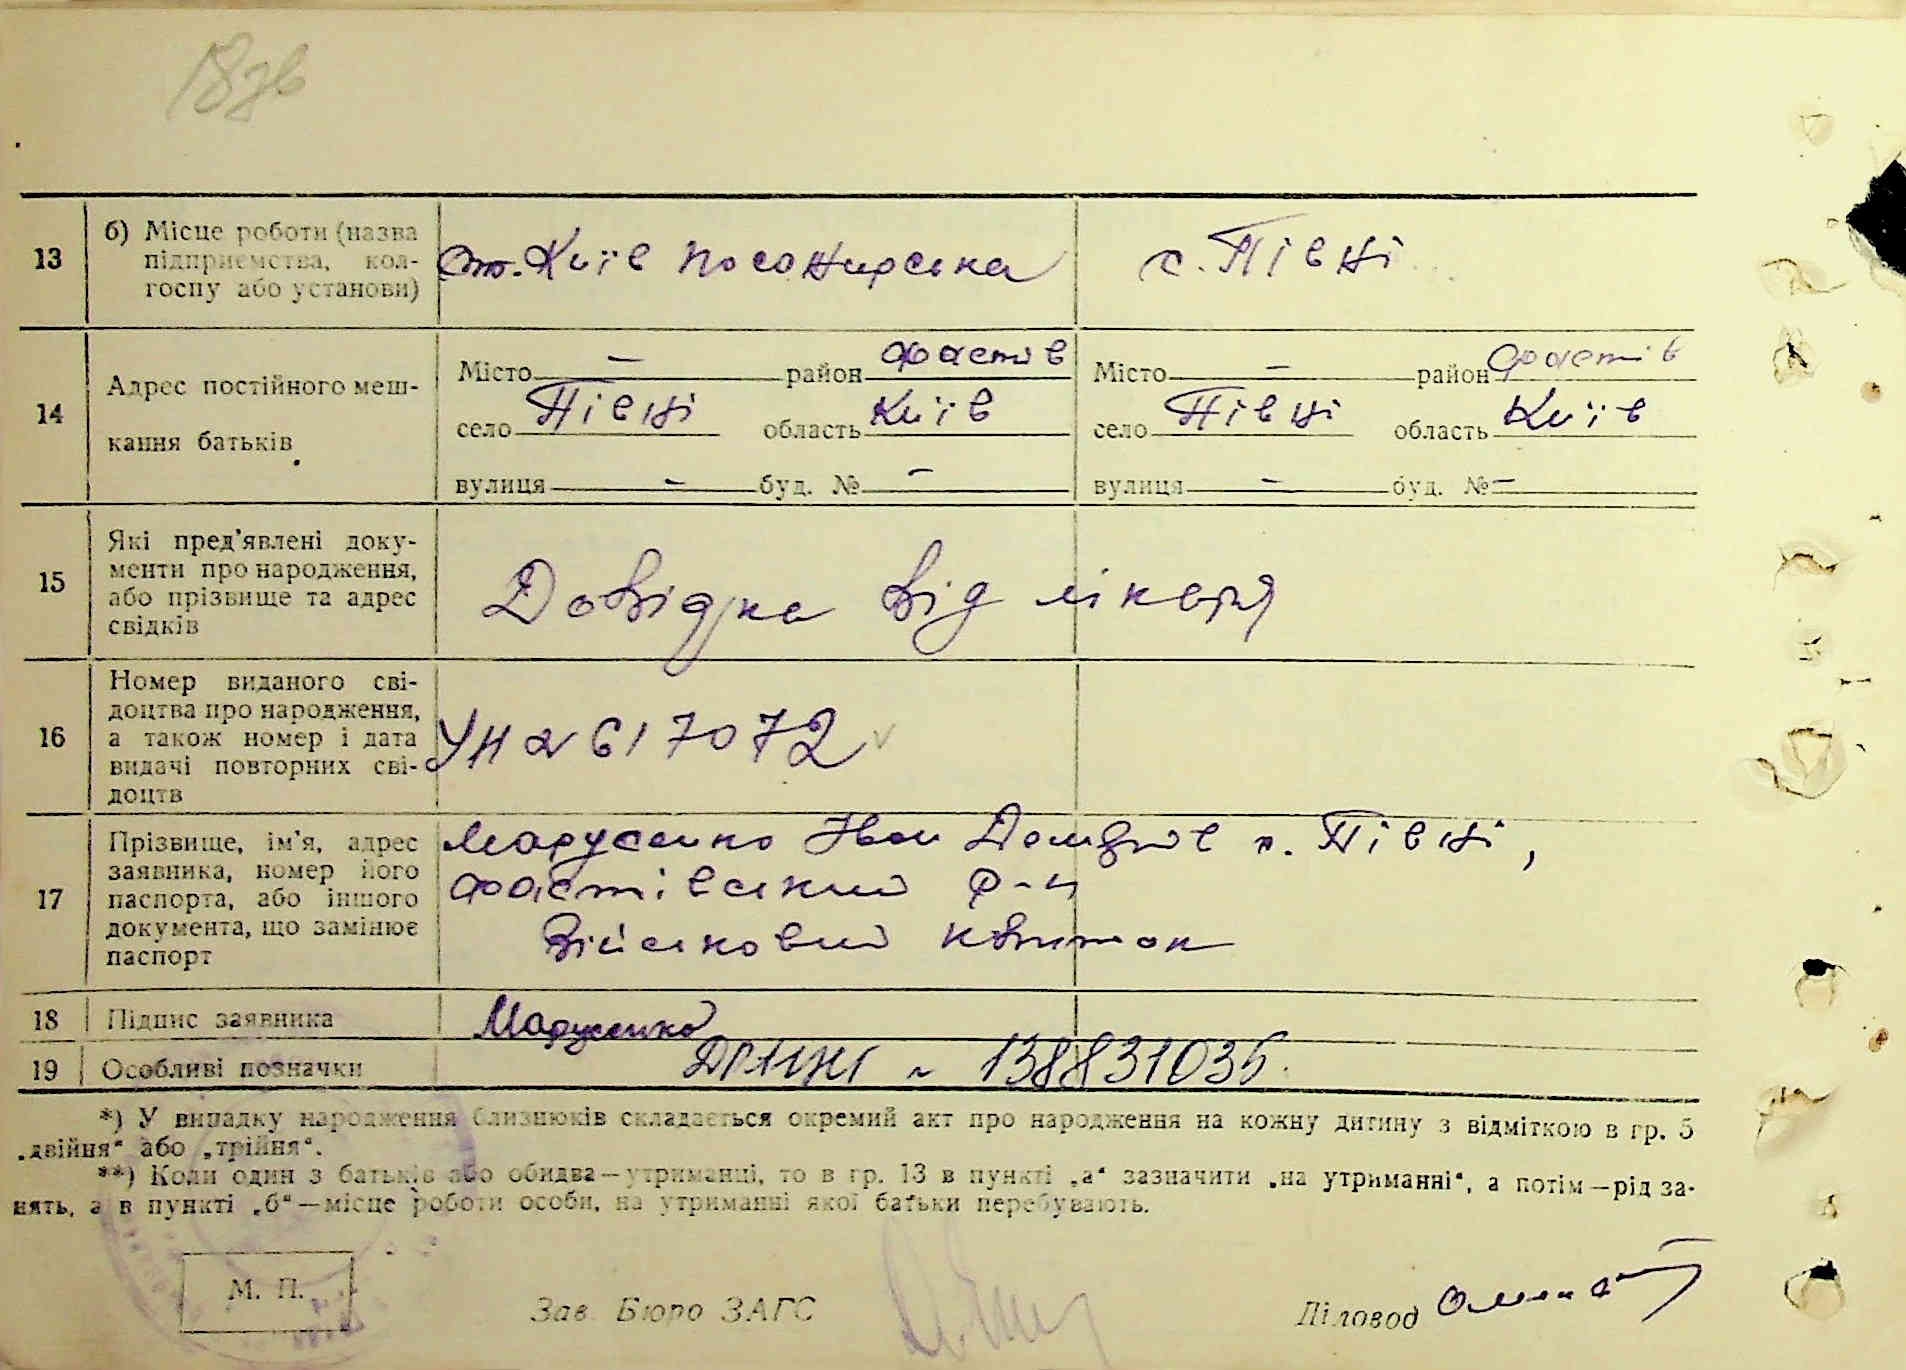 18зв
13
б) Місце роботи (назва
підприємства, кол-
госпу або установи)
ст. Київ посажирська
с. Півні
14
Адрес постійного меш-
кання батьків
Місто — район Фастів
село Півні область Київ
вулиця — буд. № —
Місто — район Фастів
село Півні область Київ
вулиця — буд. № —
15
Які пред'явлені доку-
менти про народження,
або прізвище та адрес
свідків
Довідка від лікаря
16
Номер виданого сві-
доцтва про народження,
а також номер і дата
видачі повторних сві-
доцтв
УН № 617072
17
Прізвище, ім'я, адрес
заявника, номер його
паспорта, або іншого
документа, що замінює
паспорт
Марусенко Іван с. Півні,
Фастівський р-н
Військовий квиток
18
Підпис заявника
Марусенко
19
Особливі позначки
138831035.
*) У випадку народження близнюків складається окремий акт про народження на кожну дитину з відміткою в гр. 5
„двійня“ або „трійня“.
**) Коли один з батьків або обидва—утриманці, то в гр. 13 в пункті „а“ зазначити „на утриманні“, а потім—рід за-
нять, а в пункті „б“—місце роботи особи, на утриманні якої батьки перебувають.
М. П.
Зав. Бюро ЗАГС
Діловод